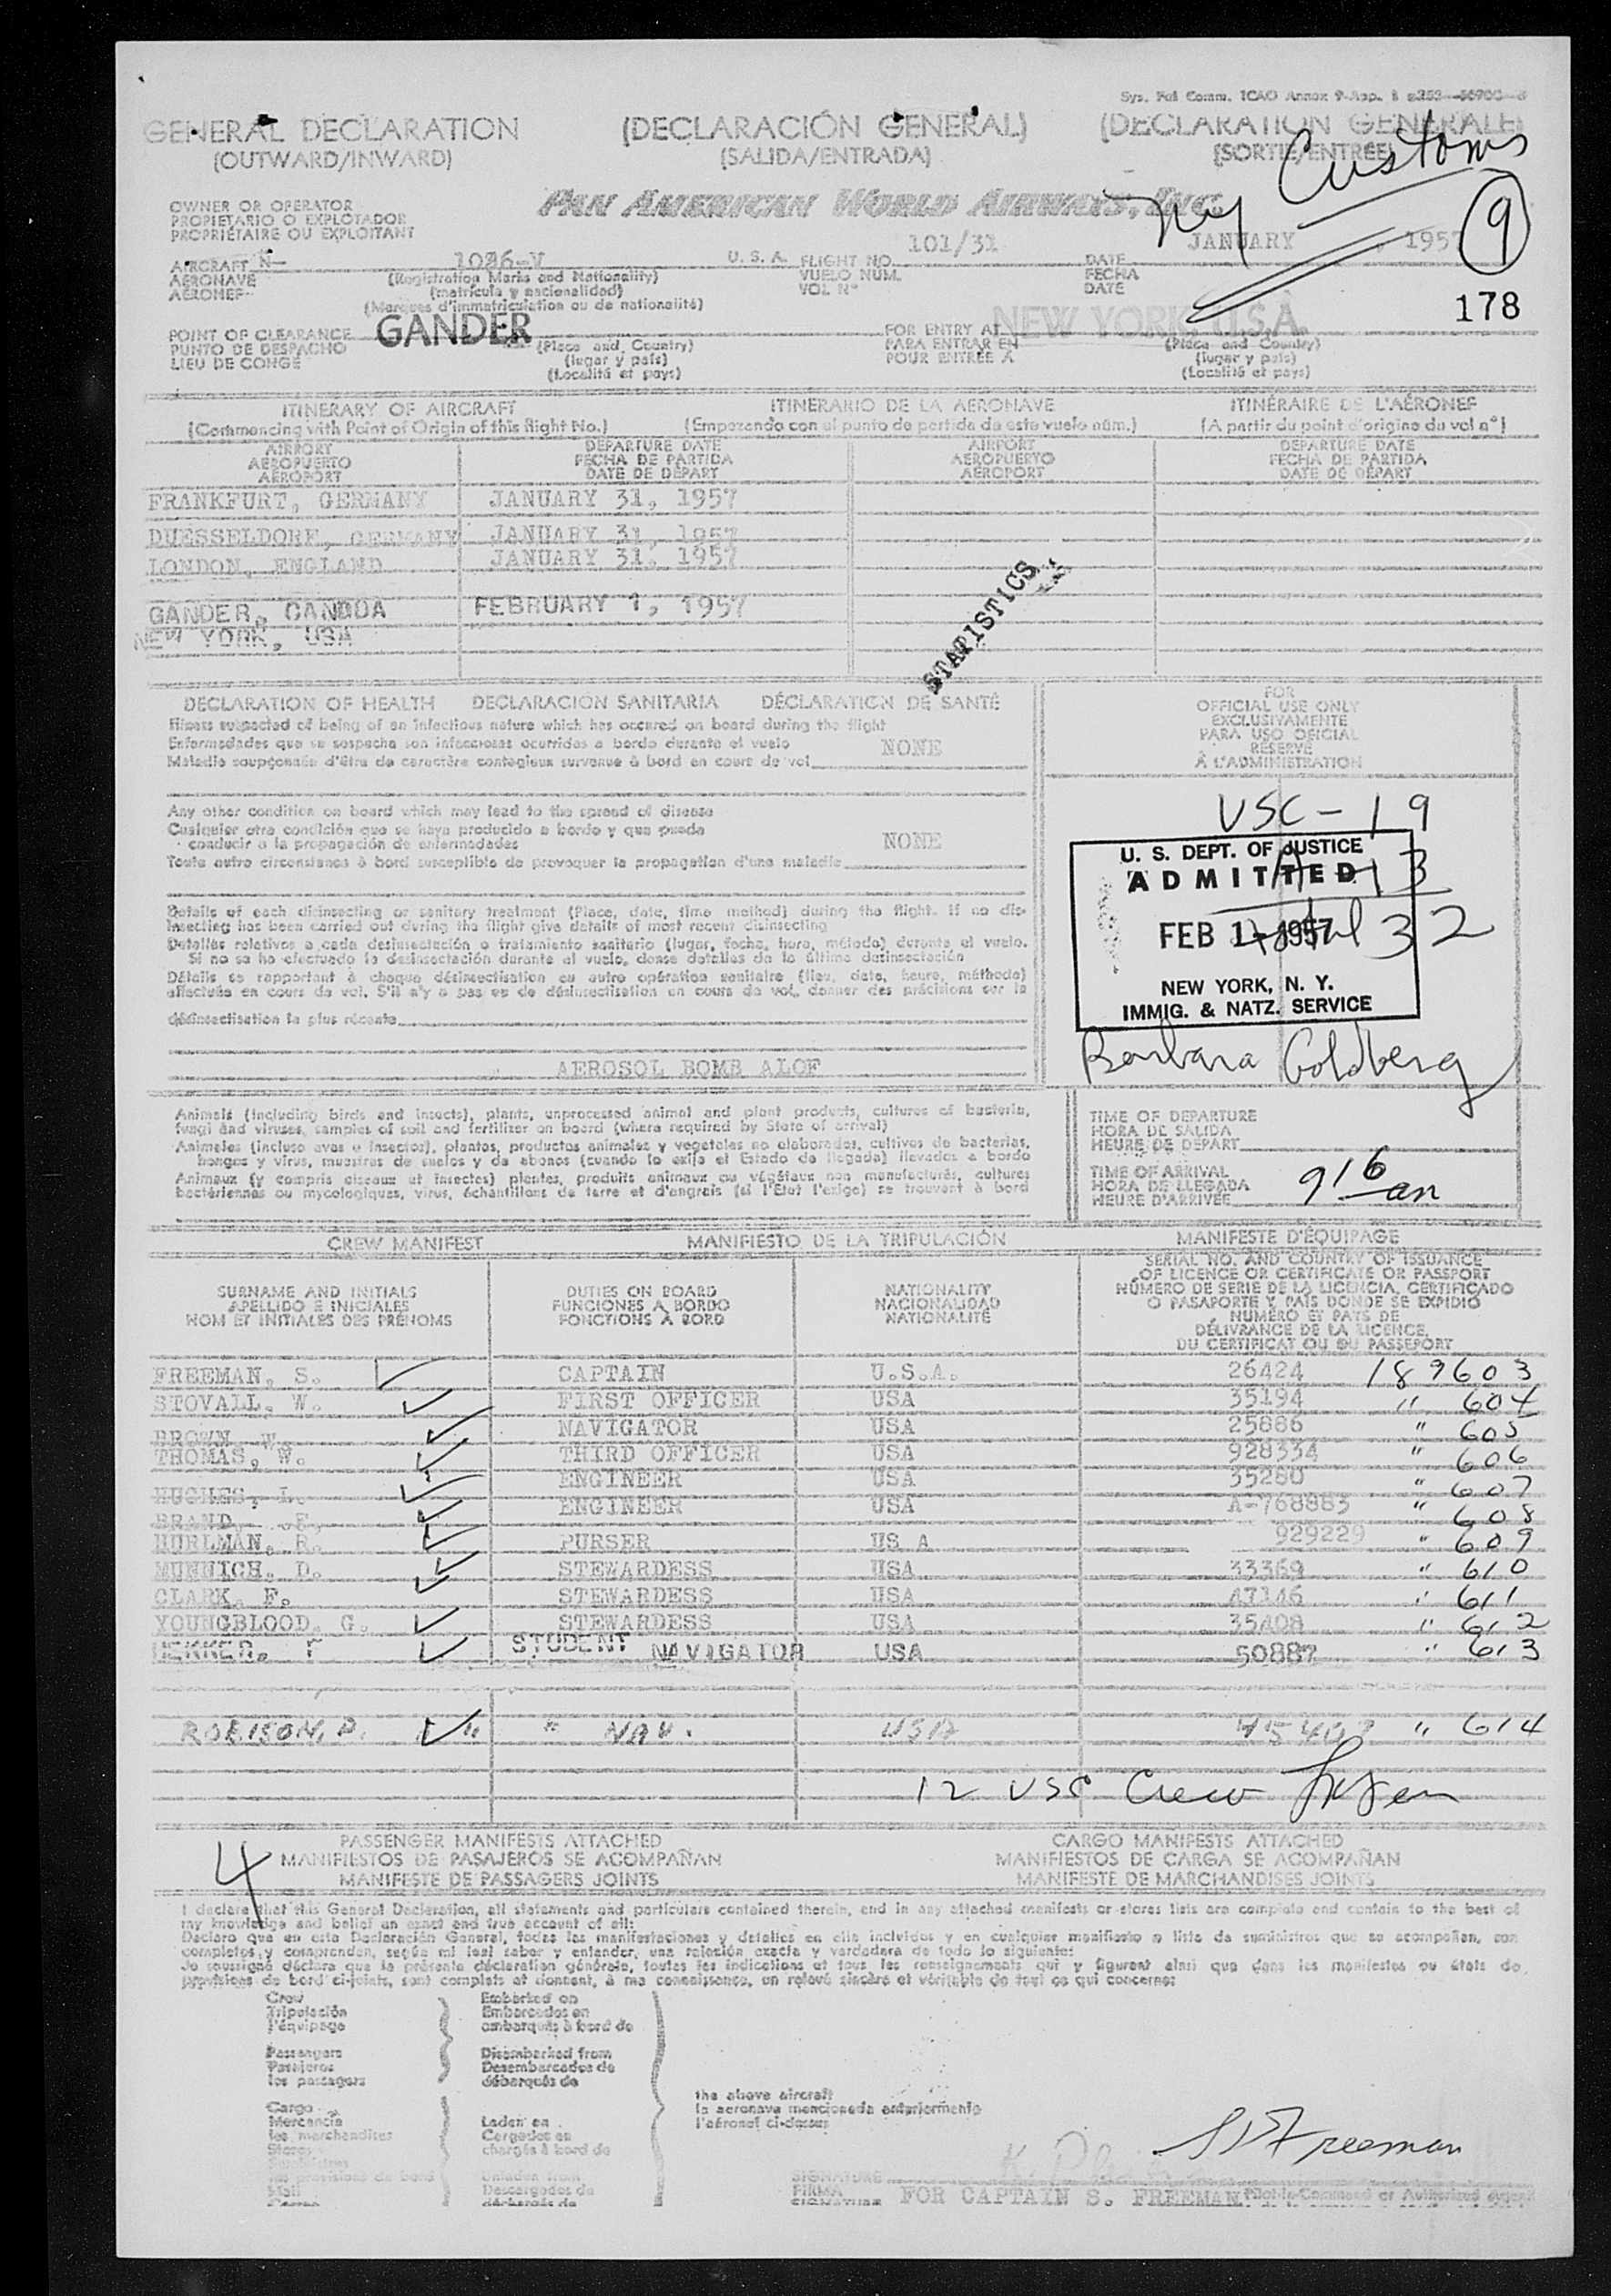 GENERAL DECLARATION (DECLARACIÓN GENERAL) (DECLARATION GENERALE)
(OUTWARD/INWARD) (SALIDA/ENTRADA) (SORTIE/ENTRÉE)
NY Customs
OWNER OR OPERATOR
PROPIETARIO O EXPLOTADOR
PROPRIÉTAIRE OU EXPLOITANT
PAN AMERICAN WORLD AIRWAYS, INC.
9
AIRCRAFT N- U. S. A. FLIGHT NO. 101/31 DATE JANUARY , 1957
AERONAVE (Registration Marks and Nationality) VUELO NUM. FECHA
AÉRONEF (matrícula y nacionalidad) VOL Nº DATE
(Marques d'immatriculation ou de nationalité)
178
POINT OF CLEARANCE GANDER FOR ENTRY AT NEW YORK, U.S.A.
PUNTO DE DESPACHO (Place and Country) PARA ENTRAR EN (Place and Country)
LIEU DE CONGÉ (lugar y país) POUR ENTRÉE À (lugar y país)
(Localité et pays) (Localité et pays)
ITINERARY OF AIRCRAFT ITINERARIO DE LA AERONAVE ITINÉRAIRE DE L'AÉRONEF
(Commencing with Point of Origin of this flight No.) (Empezando con el punto de partida de este vuelo núm.) (A partir du point d'origine du vol nº)
AIRPORT DEPARTURE DATE AIRPORT DEPARTURE DATE
AEROPUERTO FECHA DE PARTIDA AEROPUERTO FECHA DE PARTIDA
AÉROPORT DATE DE DÉPART AÉROPORT DATE DE DÉPART
FRANKFURT, GERMANY JANUARY 31, 1957
DUESSELDORF, GERMANY JANUARY 31, 1957
LONDON, ENGLAND JANUARY 31, 1957
GANDER, CANDDA FEBRUARY 1, 1957
NEW YORK, USA
STATISTICS
DECLARATION OF HEALTH DECLARACIÓN SANITARIA DÉCLARATION DE SANTÉ
Illness suspected of being of an infectious nature which has occured on board during the flight
Enfermedades que se sospecha son infecciosas ocurridas a bordo durante el vuelo
Maladie soupçonnée d'être de caractère contagieux survenue à bord en cours de vol NONE
FOR
OFFICIAL USE ONLY
EXCLUSIVAMENTE
PARA USO OFICIAL
RÉSERVÉ
À L'ADMINISTRATION
Any other condition on board which may lead to the spread of disease
Cualquier otra condición que se haya producido a bordo y que pueda
conducir a la propagación de enfermedades NONE
Toute autre circonstance à bord susceptible de provoquer la propagation d'une maladie
USC - 19
A - 13
Total 32
U. S. DEPT. OF JUSTICE
ADMITTED
FEB 1 - 1957
NEW YORK, N. Y.
IMMIG. & NATZ. SERVICE
Barbara Goldberg
Details of each disinsecting or sanitary treatment (Place, date, time method) during the flight. If no dis-
insecting has been carried out during the flight give details of most recent disinsecting
Detalles relativos a cada desinsectación o tratamiento sanitario (lugar, fecha, hora, método) durante el vuelo.
Si no se ha efectuado la desinsectación durante el vuelo, dense detalles de la última desinsectación
Détails se rapportant à chaque désinsectisation ou autre opération sanitaire (lieu, date, heure, méthode)
effectuée en cours de vol. S'il n'y a pas eu de désinsectisation en cours de vol, donner des précisions sur la
désinsectisation la plus récente
AEROSOL BOMB ALOF
Animals (including birds and insects), plants, unprocessed animal and plant products, cultures of bacteria,
fungi and viruses, samples of soil and fertilizer on board (where required by State of arrival)
Animales (incluso aves e insectos), plantas, productos animales y vegetales no elaborados, cultivos de bacterias,
hongos y virus, muestras de suelos y de abonos (cuando lo exija el Estado de llegada) llevados a bordo
Animaux (y compris oiseaux et insectes) plantes, produits animaux ou végétaux non manufacturés, cultures
bactériennes ou mycologiques, virus, échantillons de terre et d'engrais (si l'État l'exige) se trouvant à bord
TIME OF DEPARTURE
HORA DE SALIDA
HEURE DE DÉPART
TIME OF ARRIVAL
HORA DE LLEGADA
HEURE D'ARRIVÉE 916 am
CREW MANIFEST MANIFIESTO DE LA TRIPULACIÓN MANIFESTE D'ÉQUIPAGE
SURNAME AND INITIALS DUTIES ON BOARD NATIONALITY SERIAL NO. AND COUNTRY OF ISSUANCE
APELLIDO E INICIALES FUNCIONES A BORDO NACIONALIDAD OF LICENCE OR CERTIFICATE OR PASSPORT
NOM ET INITIALES DES PRÉNOMS FONCTIONS À BORD NATIONALITÉ NÚMERO DE SERIE DE LA LICENCIA, CERTIFICADO
O PASAPORTE Y PAÍS DONDE SE EXPIDIÓ
NUMÉRO ET PAYS DE
DÉLIVRANCE DE LA LICENCE,
DU CERTIFICAT OU DU PASSEPORT
FREEMAN, S. CAPTAIN U.S.A. 26424 189603
STOVALL, W. FIRST OFFICER USA 35194 " 604
BROWN, W. NAVIGATOR USA 25886 " 605
THOMAS, W. THIRD OFFICER USA 928334 " 606
HUGHES, L. ENGINEER USA 35280 " 607
BRAND, F. ENGINEER USA A-768883 " 608
HURLMAN, R. PURSER US A 929229 " 609
MUENICH, D. STEWARDESS USA 33369 " 610
CLARK, F. STEWARDESS USA 47146 " 611
YOUNGBLOOD, G. STEWARDESS USA 35408 " 612
STUDENT NAVIGATOR USA 50887 " 613
ROBISON, D. " NAV. USA " 614
12 USC Crew
4
PASSENGER MANIFESTS ATTACHED CARGO MANIFESTS ATTACHED
MANIFIESTOS DE PASAJEROS SE ACOMPAÑAN MANIFIESTOS DE CARGA SE ACOMPAÑAN
MANIFESTE DE PASSAGERS JOINTS MANIFESTE DE MARCHANDISES JOINTS
I declare that this General Declaration, all statements and particulars contained therein, and in any attached manifests or stores lists are complete and contain to the best of
my knowledge and belief an exact and true account of all:
Declaro que en esta Declaración General, todas las manifestaciones y detalles en ella incluidos y en cualquier manifiesto o lista de suministros que se acompañen, son
completos, y comprenden, según mi leal saber y entender, una relación exacta y verdadera de todo lo siguiente:
Je soussigné déclare que la présente déclaration générale, toutes les indications et tous les renseignements qui y figurent ainsi que dans les manifestes ou états de
provisions de bord ci-joints, sont complets et donnent, à ma connaissance, un relevé sincère et véritable de tout ce qui concerne:
Crew Embarked on
Tripulación Embarcados en
l'équipage embarqués à bord de
Passengers Disembarked from
Pasajeros Desembarcados de
les passagers débarqués de
the above aircraft
la aeronave mencionada anteriormente
l'aéronef ci-dessus
Cargo
Mercancía Laden on
les marchandises Cargados en
Stores chargés à bord de
Suministros
les provisions de bord Unladen from
Mail Descargados de
Correo déchargés de
S D Freeman
SIGNATURE
FIRMA FOR CAPTAIN S. FREEMAN Pilot-in-Command or Authorized agent
SIGNATURE